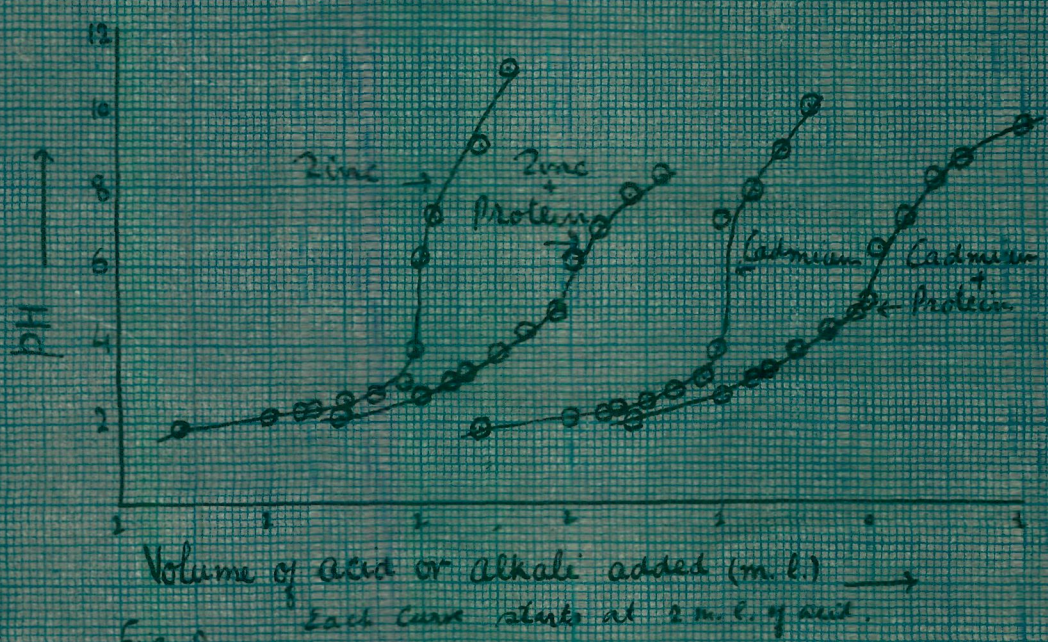 12
10
Zinc → Zinc
+
Protein
8
6
Cadmium
Cadmium
+
← Protein
pH
4
2
1 1 1 2 1 0 1
Volume of acid or alkali added (m.l.) →
Each Curve starts at 2 m.l. of acid.